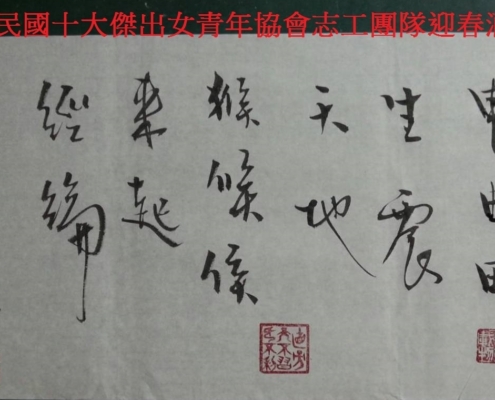 民國十大傑出女青年協會志工團隊迎春
申由
生震
天地
猴候侯
來起
經綸